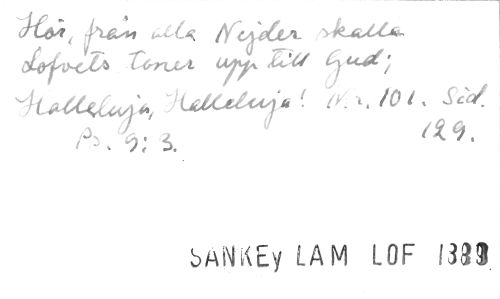 Hör, från alla Nejder skalla
Lofvets toner upp till Gud;
Halleluja, Halleluja! Nr. 101. Sid.
Ps. 9: 3. 129.
SANKEy LAM LOF 1889